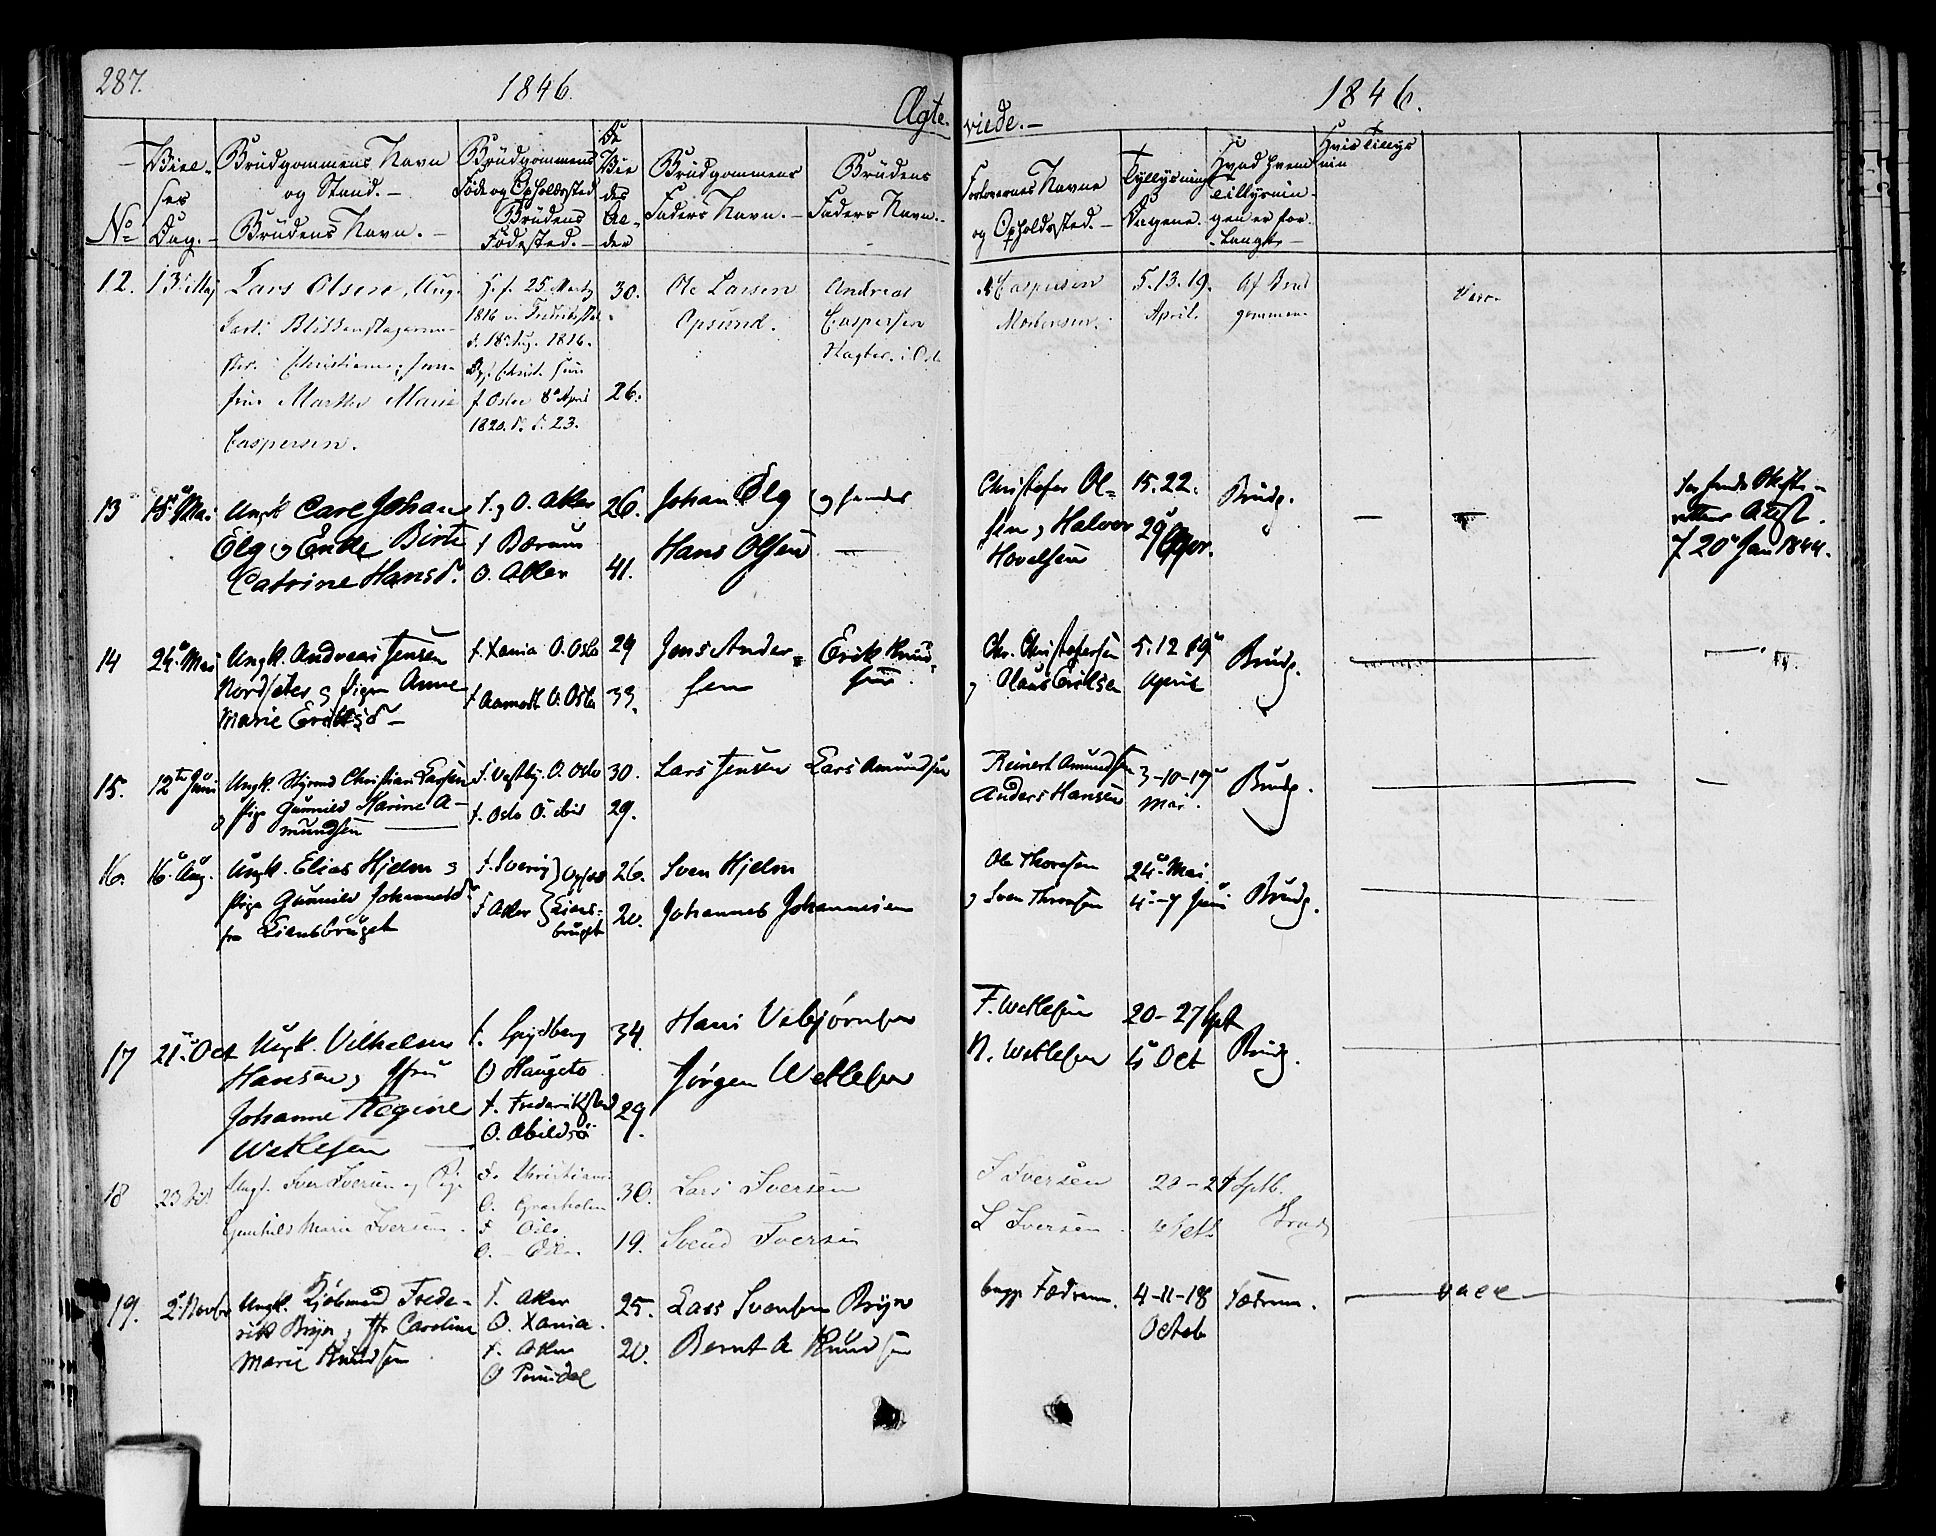 287.
1846.
1846.
Ægte-
viede.-
No
Viel-
ses
Dag.-
Brudgommens Navn
og Stand.-
Brudens Navn.-
Brudgommens
Føde og Opholdssted
Brudens
Fødested.-
De
Vie
des
Al-
der
Brudgommens
Faders Navn.-
Brudens
Faders Navn.-
Forlovernes Navne
og Opholdssted.-
Tyllysning
Dagene.
Hvad hvem
Tillysnin-
gen er for-
langt-
Hvis Tillys
nin
12. 13 Maj
Lars Olsen, Ung-
Christiania, Jom-
fru Marthe Marie
Caspersen.
25 Marty
1816
1816.
f Osloe 8 April
1820. d. 23.
30.
26.
Ole Larsen
Opsund.
Andreas
Caspersen
Caspersen
Mortensen.
5. 13. 19.
April.
Af Brud
gommen
13 15 Mai
Ungk Carl Johan
Elg og Enke Birte
Catrine Hansd.
f. og O. Aker
f Bærum
O. Aker
26.
41.
Johan Elg
Hans Olsen
Christofer Ol-
sen og Halvor
Hovelsen
15. 22.
29
Brudg.
Attest.
20 Jan 1844.
14 24 Mai
Ungk. Andreas Jensen
Nordseter og Pigen Anne
Marie Eriksd-
f. Xania O. Oslo
f Aamodt O. Oslo
29
33.
Jens Ander-
sen
Erik Knud-
sen
Chr. Christophersen
og Olaus Eriksen
5. 12 19
April
Brudg.
15. 12te Juni
Ungk. Styrmd Christian Larsen
og Pige Gunnild Karine A-
mundsen
f. Vestby. O. Oslo
f. Oslo O. ibid
30.
29.
Lars Jensen
Lars Amundsen
Reinert Amundsen
Anders Hansen
3-10-17
Mai.
Brudg.
16. 16 Aug.
Ungk. Elias Hjelm og
Pige Gunnild Johannesd
fra Liensbruget
f. Sverig
f Aker
Liens-
bruget
26.
20.
Sven Hjelm
Johannes Johannesen
Ole Thoresen
og Sven Thoresen
24 Mai
4-7 Juni
Brudg.
17 21 Oct
Ungk. Vilhelm
Hansen, og Jfru
Johanne Regine
Wetlesen
f. Spydberg
O Haugeto
f. Frederikstad
O. Abildsø
34.
29.
Hans Vebjørnsen
Jørgen Wetlesen
F. Wetlesen
N. Wetlesen
20-27 Sept
4 Oct
Brudg.
18 23 Oct
Ungk. Iver Iversen og Pige
Gunhild Marie Iversen.
F. Christiania
O. Græsholm
F Oslo
O.- Oslo
30.
19.
Lars Iversen
Svend Iversen
I Iversen
L Iversen
20-27 Septb.
Brudg
19. 2 Novbr
Ungk. Kjøbmand Frede-
rik Bryn, og Jfr Caroline
Marie Knudsen
f. Aker
O. Xania.
f. Aker
O
25.
20.
Lars Svensen Bryn
Bernt A Knudsen
begge Fædrene.
4-11-18
Octob
Fædrene.
vacc